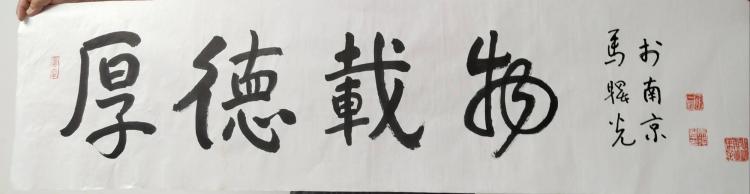 厚德載物
於南京
馬曙光